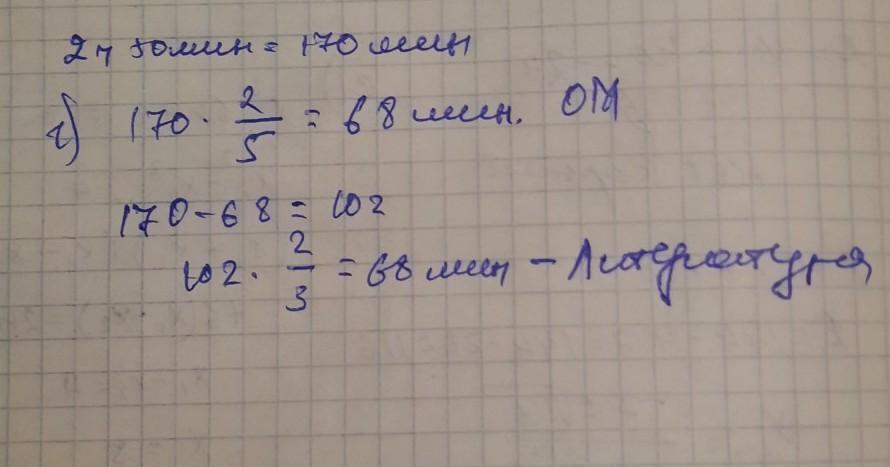 2ч 50мин = 170 мин
1) 170 · 2/5 = 68 мин. ОМ
170 - 68 = 102
102 · 2/3 = 68 мин - Литература